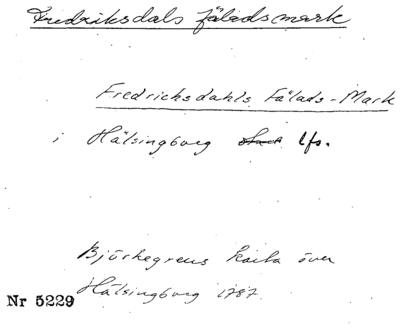 Fredriksdals fäladsmark
Fredrichsdahls Fälads-Mark
i Hälsingborg lfs.
Björkegrens karta över
Hälsingborg 1787.
Nr 5229